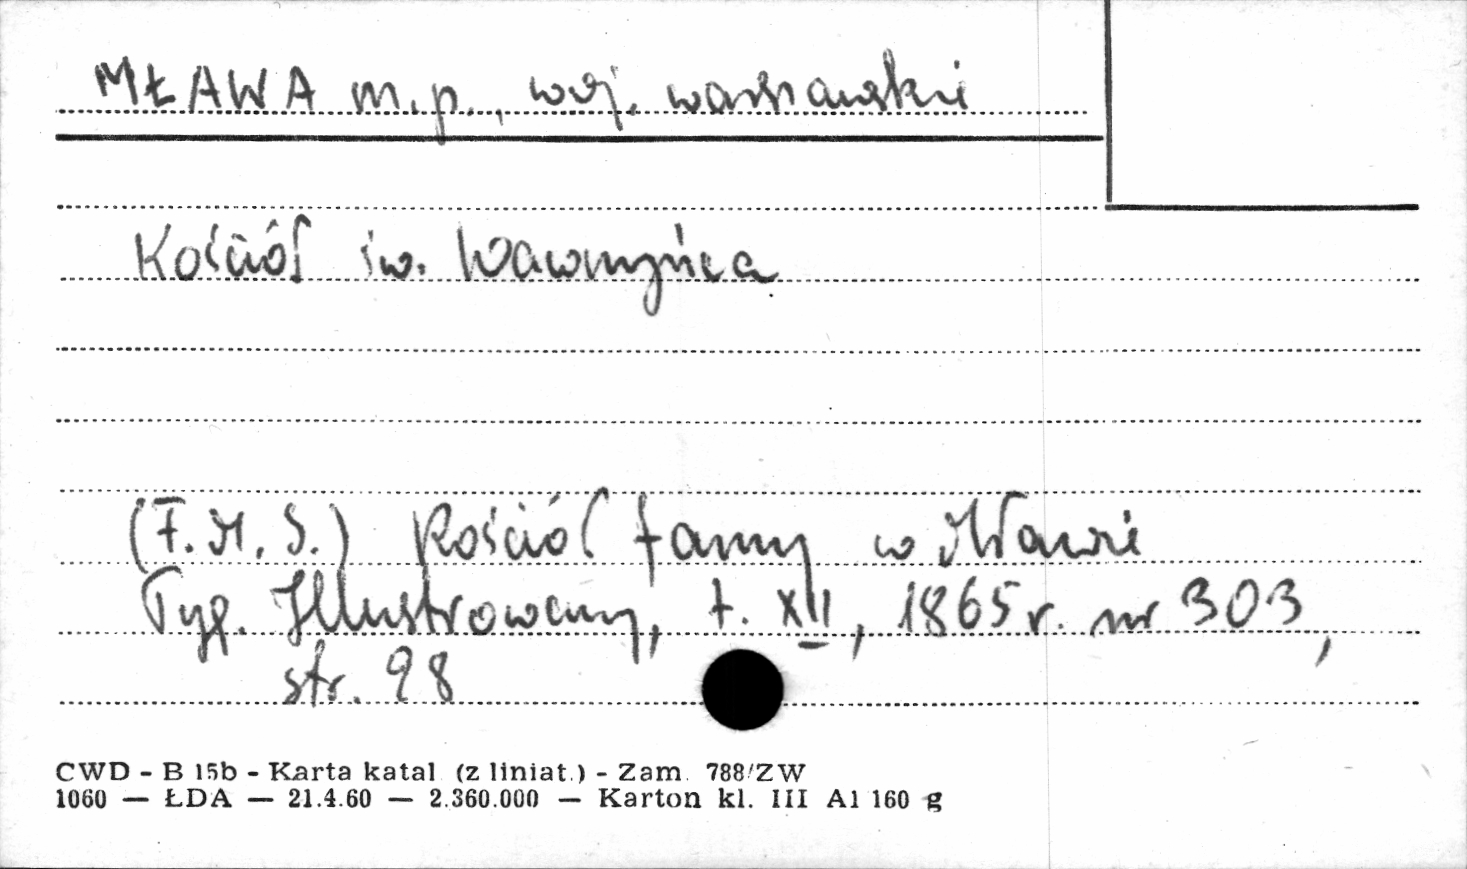 MŁAWA m.p., woj. warszawskie
Kościół św. Wawrzyńca
(F.M.S.) Kościół farny w Mławie
Tyg. Illustrowany, t. XII, 1865 r. nr 303,
str. 28
CWD - B 15b - Karta katal (z liniat.) - Zam. 788/ZW
1060 — ŁDA — 21.4.60 — 2.360.000 — Karton kl. III A1 160 g